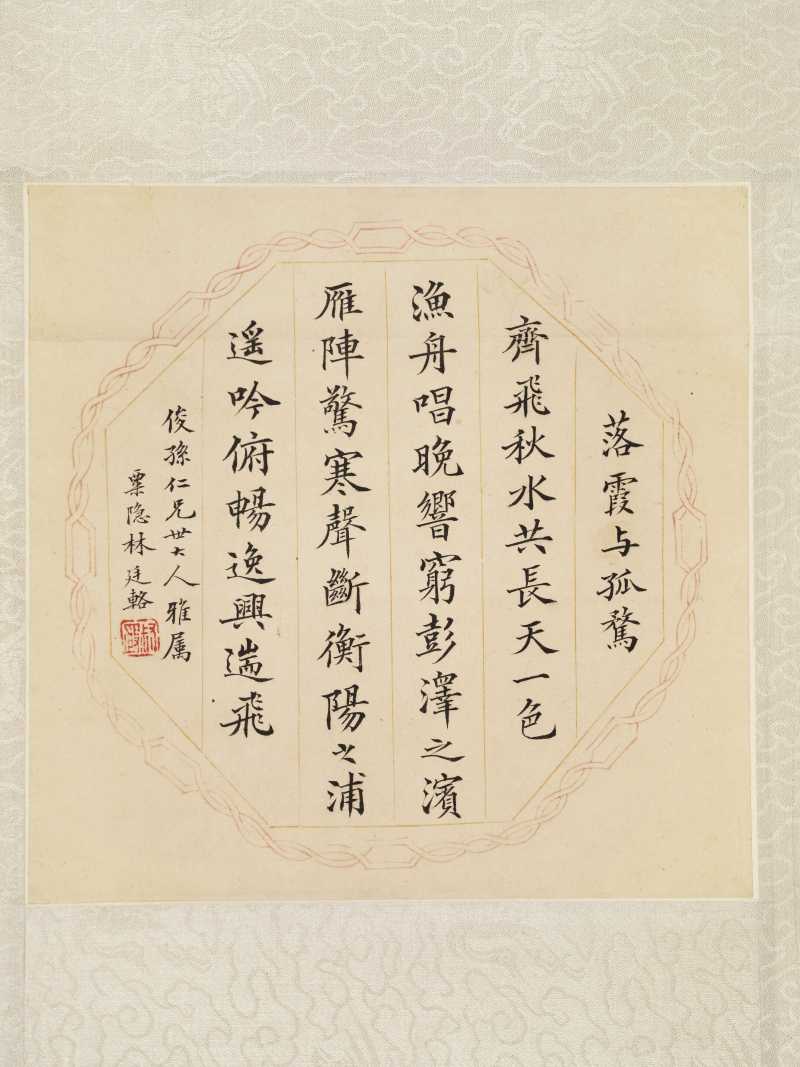 落霞与孤鶩
齊飛秋水共長天一色
漁舟唱晚響窮彭澤之濱
雁陣驚寒聲斷衡陽之浦
遥吟俯暢逸興遄飛
俊孫仁兄世大人雅属
粟隐林廷輅